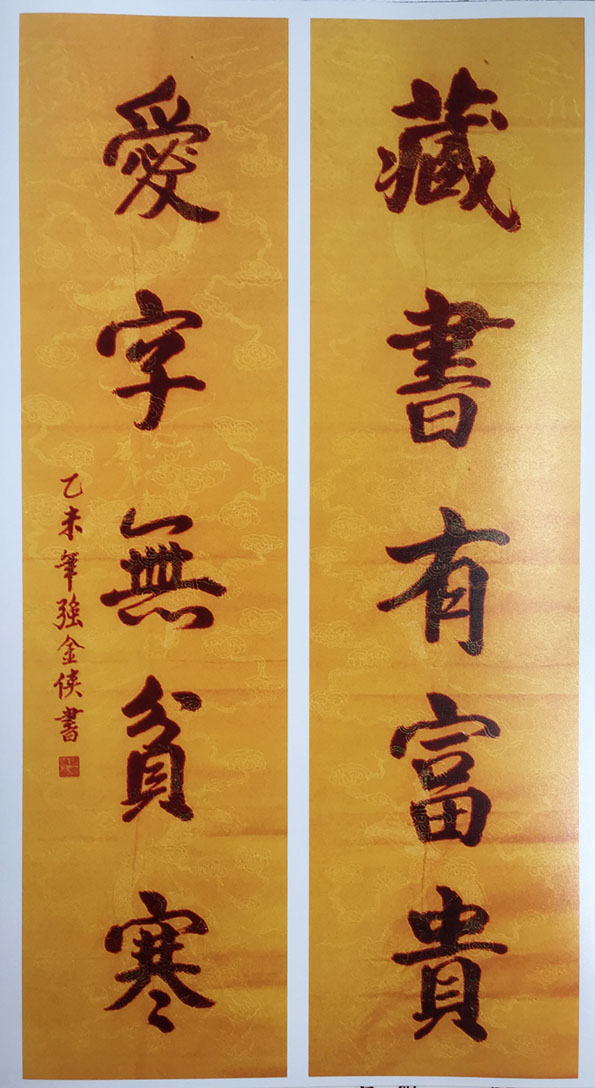 藏書有富貴
愛字無貧寒
乙未年強金俠書